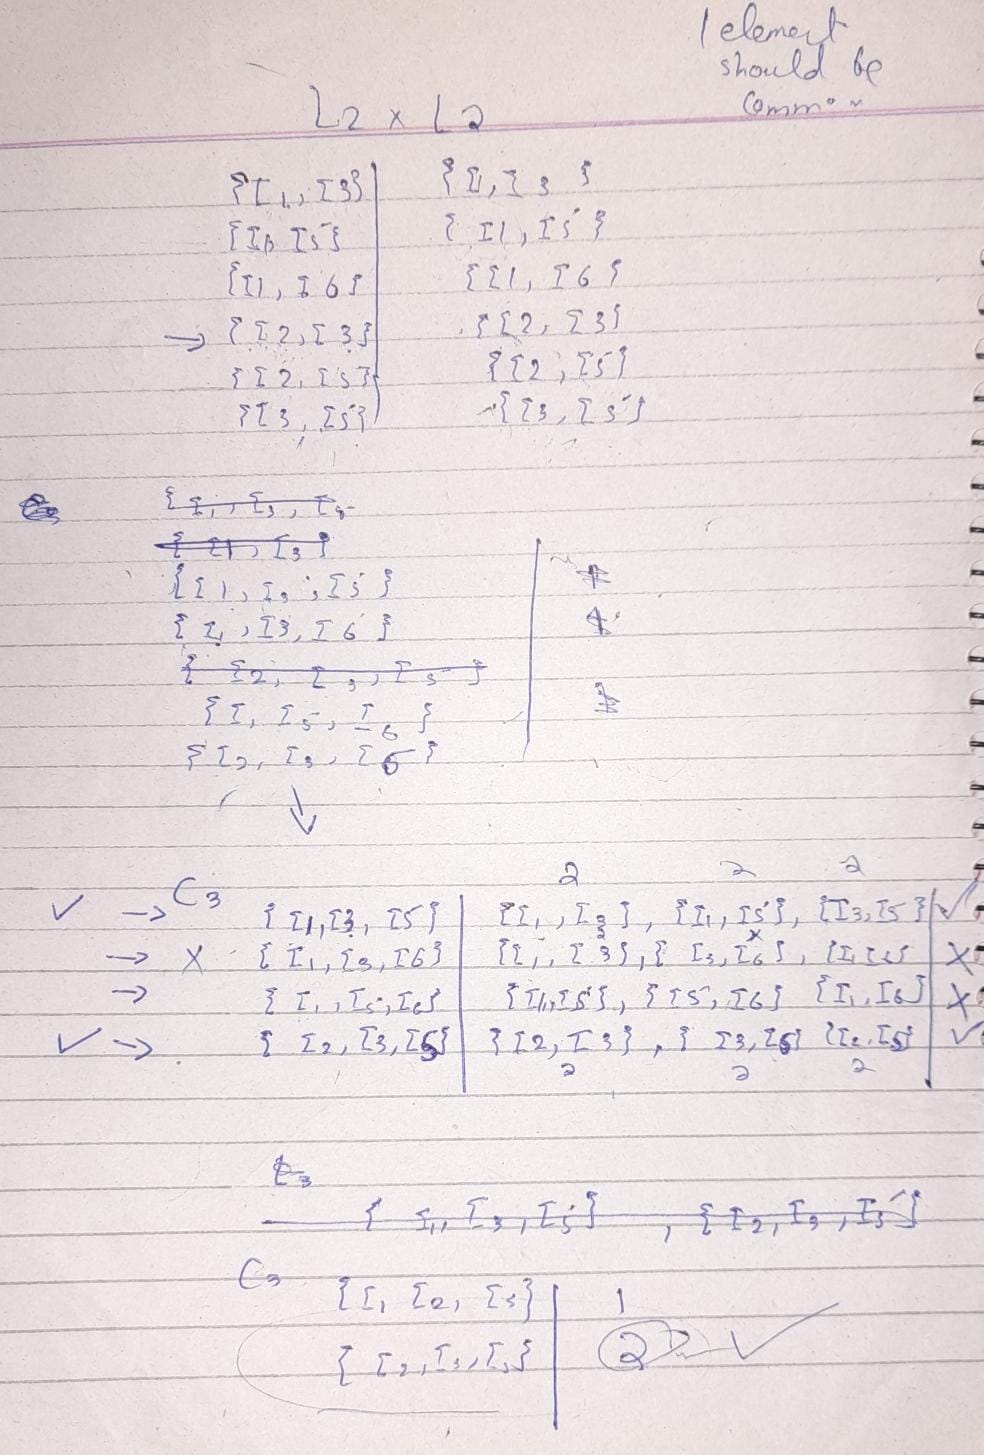 1 element
should be
common
L2 x L2
{I1, I3} | {I1, I3}
{I1, I5} | {I1, I5}
{I1, I6} | {I1, I6}
→ {I2, I3} | {I2, I3}
{I2, I5} | {I2, I5}
{I3, I5} | {I3, I5}
{I1, I3, I5
{I1, I3}
{I1, I3, I5}
{I1, I3, I6}
{I2, I3, I5}
{I1, I5, I6}
{I2, I3, I5}
↓
2 2 2
✓ → C3 {I1, I3, I5} | {I1, I3}, {I1, I5}, {I3, I5} | ✓
→ X {I1, I3, I6} | {I1, I3}, {I3, I6}, {I1, I6} | X
→ {I1, I5, I6} | {I1, I5}, {I5, I6} {I1, I6} | X
✓ → {I2, I3, I5} | {I2, I3}, {I3, I5} {I2, I5} | ✓
2 2 2
C3
{I1, I3, I5}, {I2, I3, I5}
C3 {I1, I2, I3} | 1
{I2, I3, I5} | 2 ✓